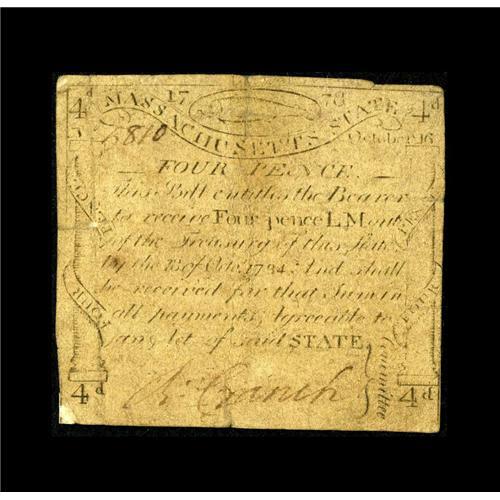 4d 17 78 4d
MASSACHUSETTS STATE
5810 October 16
FOUR PENCE.
This Bill entitles the Bearer
to receive Four pence L.M. out
of the Treasury of this State
by the 18 of Octr. 1784; And shall
be received for that Sum in
all payments, Agreeable to
an Act of said STATE.
FOUR PENCE
FOUR PENCE
Committee
R. Cranch
4d 4d